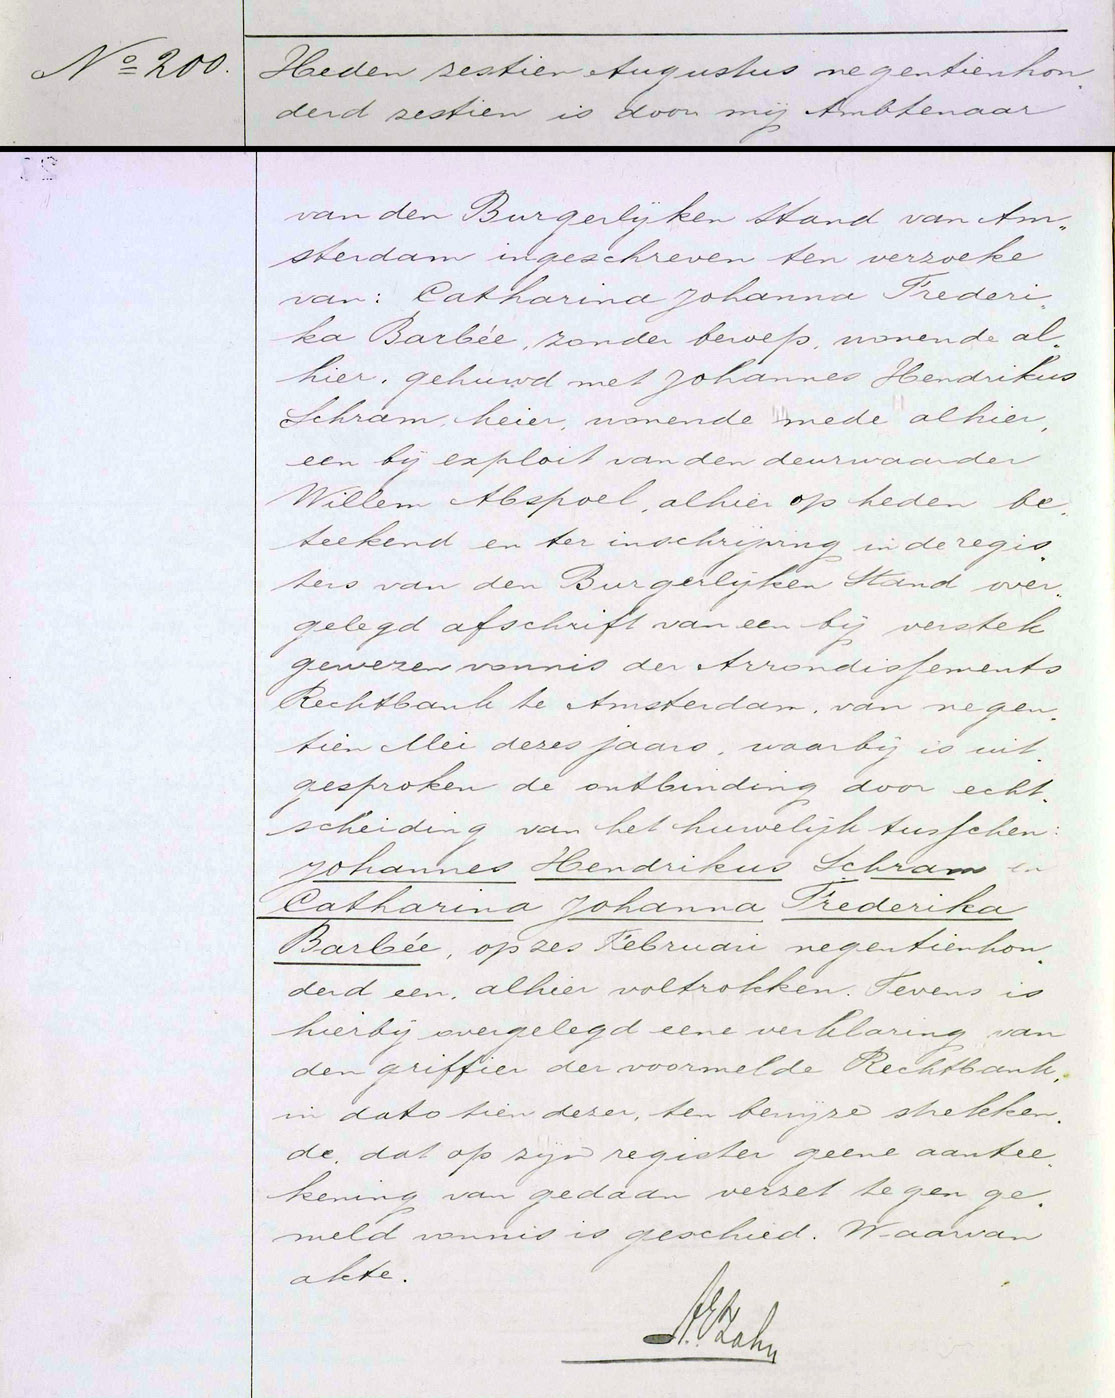 No 200.
Heden zestien Augustus negentienhon„
derd zestien is door mij Ambtenaar
van den Burgerlijken Stand van Am„
sterdam ingeschreven ten verzoeke
van: Catharina Johanna Frederi„
ka Barbée, zonder beroep, wonende al„
hier, gehuwd met Johannes Hendrikus
Schram, heier, wonende mede alhier,
een bij exploit van den deurwaarder
Willem Abspoel, alhier op heden be„
teekend en ter inschrijving in de regis„
ters van den Burgerlijken Stand over„
gelegd afschrift van een bij verstek
gewezen vonnis der Arrondissements
Rechtbank te Amsterdam, van negen„
tien Mei dezes jaars, waarbij is uit„
gesproken de ontbinding door echt„
scheiding van het huwelijk tusschen:
Johannes Hendrikus Schram en
Catharina Johanna Frederika
Barbée, op zes Februari negentienhon„
derd een, alhier voltrokken. Tevens is
hierbij overgelegd eene verklaring van
den griffier der voormelde Rechtbank,
in dato tien dezer, ten bewijze strekken„
de, dat op zijn register geene aantee„
kening van gedaan verzet tegen ge„
meld vonnis is geschied. Waarvan
akte.
Zahn